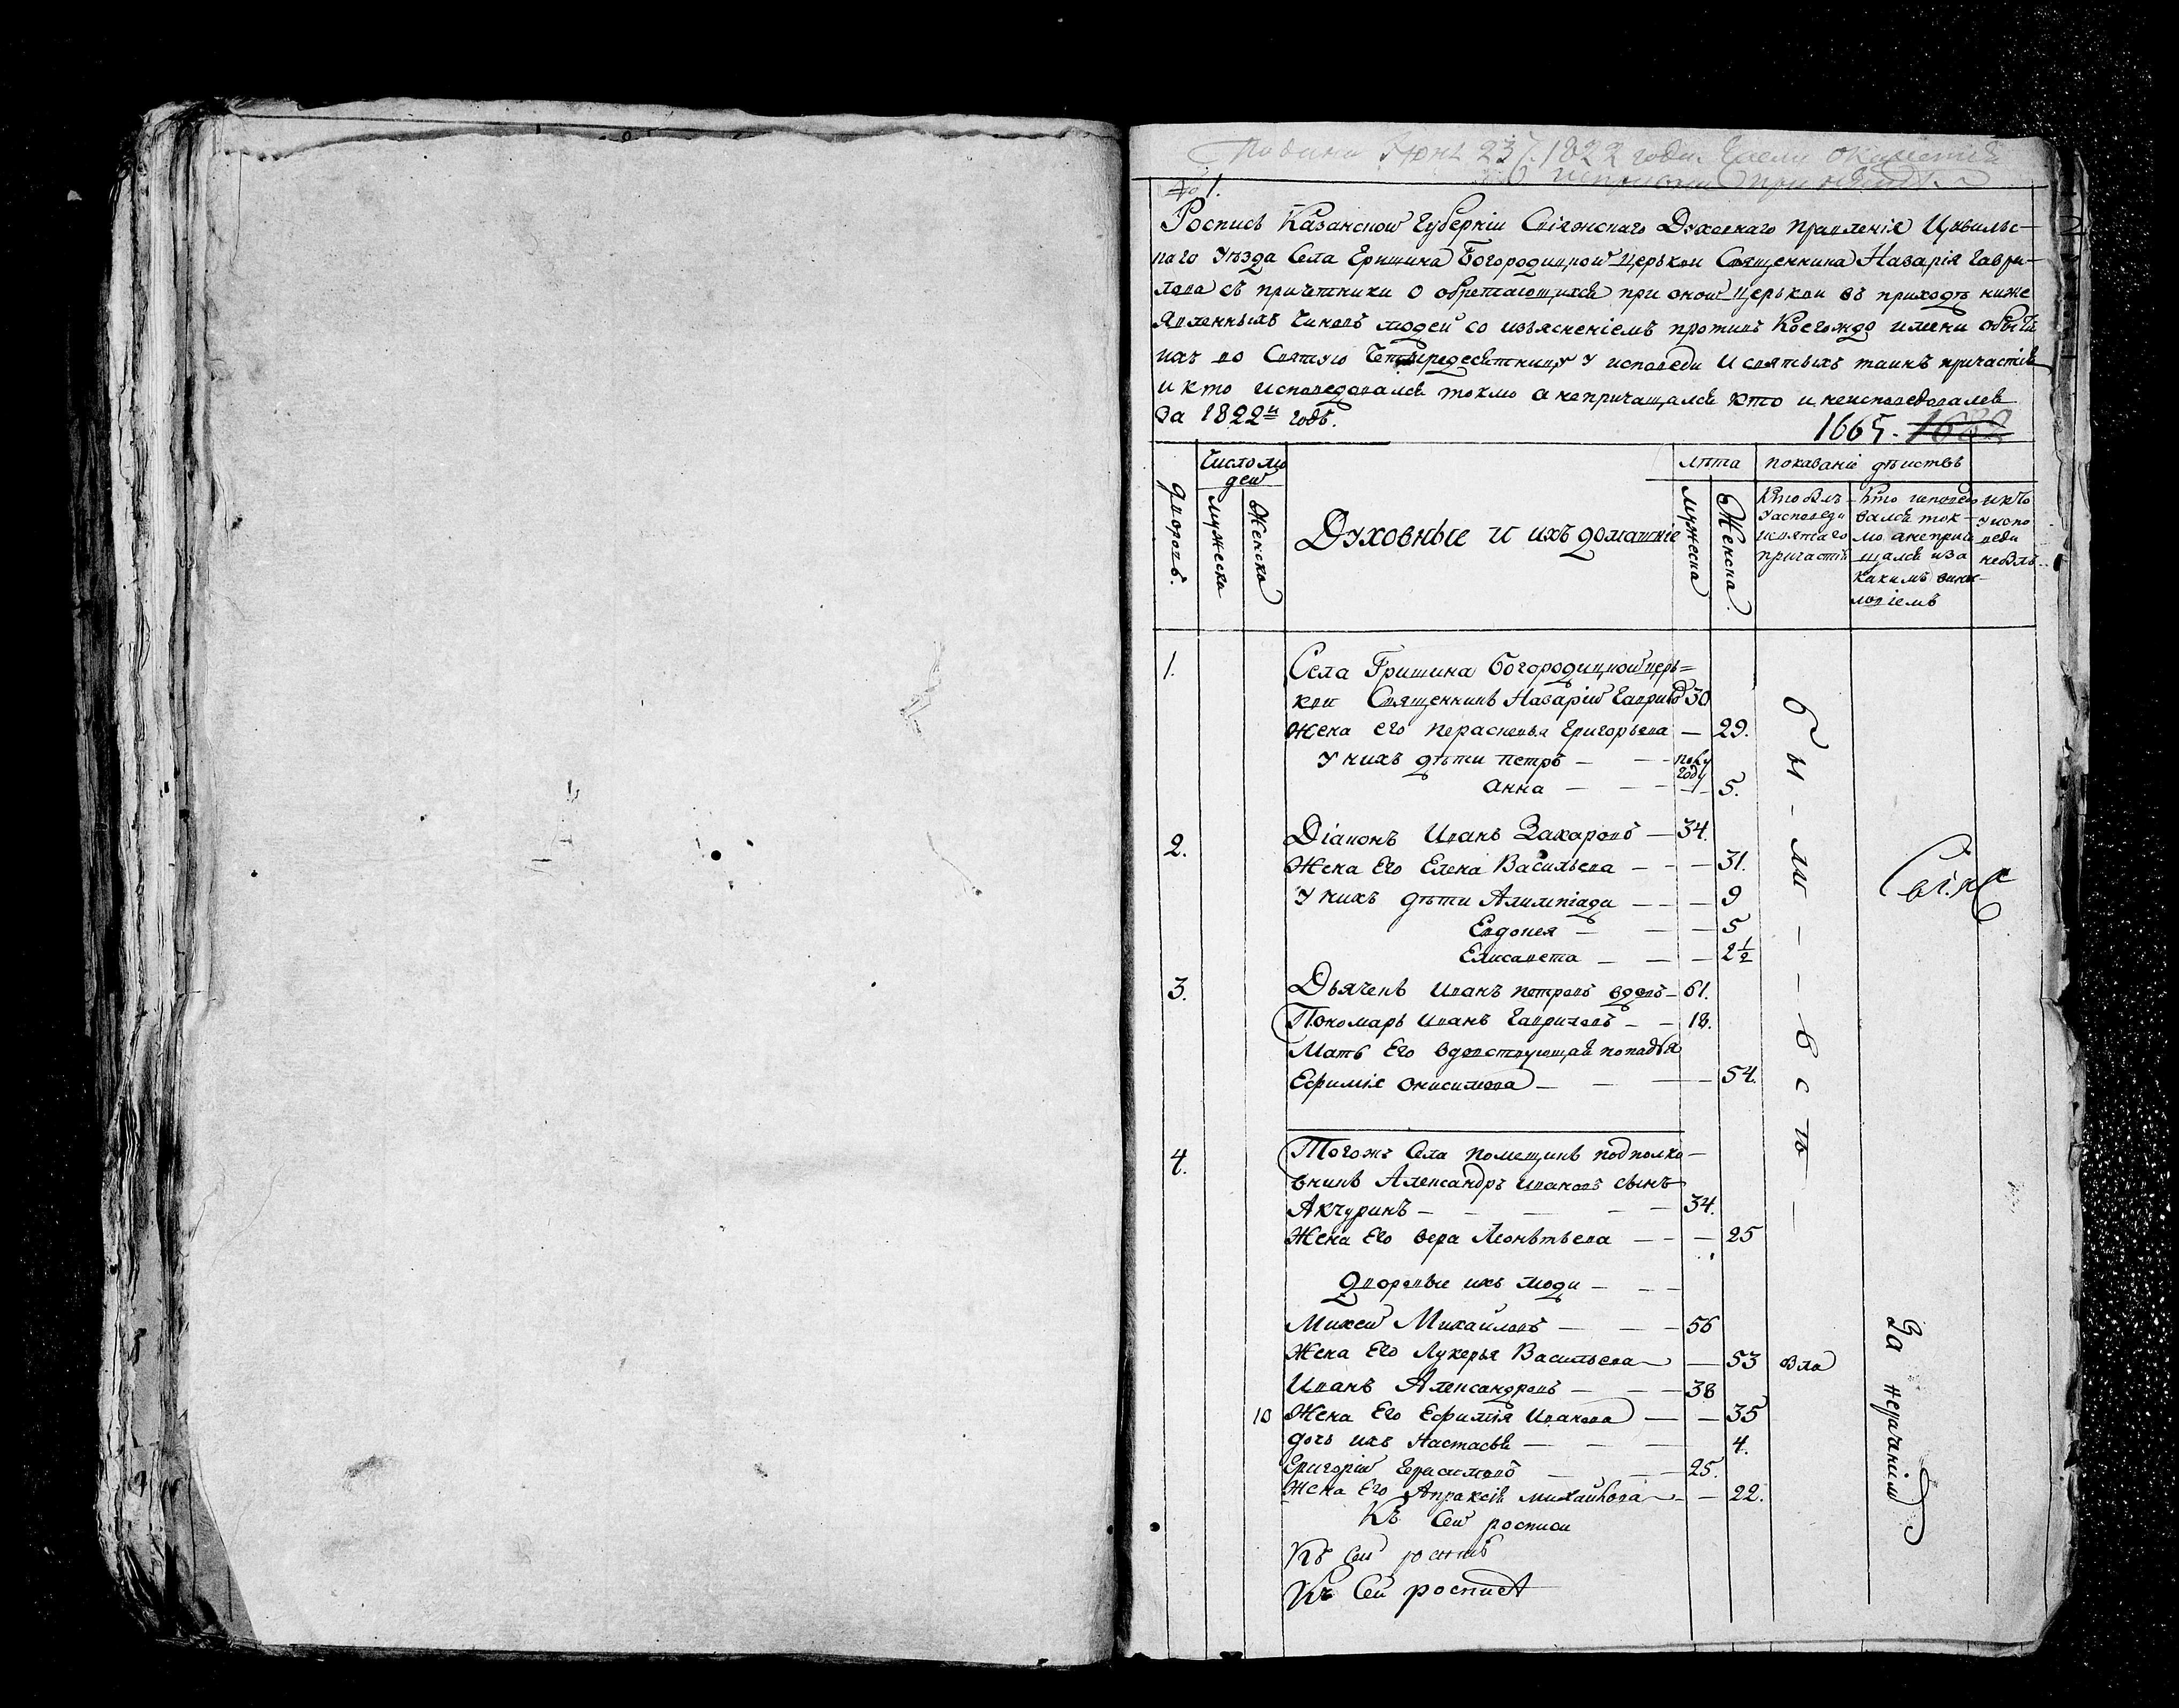 1822 года
№ 1.
Роспись Казанской Губерніи Свіяжскаго Духовнаго правленія Цывильс-
каго Уѣзда Села Гришина Богородицкой церькви Священника Назарія Гаври-
лова съ причетники о обретающихся при оной церькви въ приходѣ ниже
явленныхъ чиновъ людей со изъясненіемъ противъ Коегождо имени о бытіи
ихъ во Святую Четыредесятницу У исповеди И святыхъ таинъ причастія
и кто исповедовался токмо а непричащался кто и неисповедовался
За 1822й годъ.
1665. 1682
дворовъ.
Число лю
дей
мужеска
Женска
Духовные и ихъ домашніе
лѣта
мужеска
Женска
показаніе дѣиствъ
Кто былъ
У исповеди
и святаго
причастія
Кто исповедо
вался ток-
мо а неприча
щался и за
какимъ вины
словіемъ
и кто
у испо
веди
небылъ.
1. Села Гришина Богородицкой церь=
кви Священникъ Назарій Гаврилов 30
Жена его Перасковья Григорьева — 29.
У нихъ дѣти Петръ — полу
году
Анна — 5.
2. Діаконъ Иванъ Захаровъ — 34.
Жена Его Елена Васильева — 31.
У нихъ дѣти Алимпіада — 9
Евдокея — 5
Елисавета — 2 1/2
3. Дьячекъ Иванъ Петровъ вдовъ — 61.
Пономарь Иванъ Гавриловъ — 18.
Мать Его вдовствующая попадья
Ефимія Онисимова — 54.
были всѣ
4. Тогожъ Села Помещикъ подполко-
вникъ Александръ Ивановъ сынъ
Акчуринъ — 34.
Жена Его Вера Леонтьева — 25
Дворовые ихъ люди —
Михей Михайловъ — 56
Жена Его Лукерья Васильева — 53 была
Иванъ Александровъ — 38
10 Жена Его Ефимія Иванова — 35
дочь ихъ Настасья — 4.
Григорій Герасимовъ — 25.
Жена Его Апраксія Михайлова — 22.
За нерачаніем
Къ сей росписи
Къ сей
Къ Сей росписи